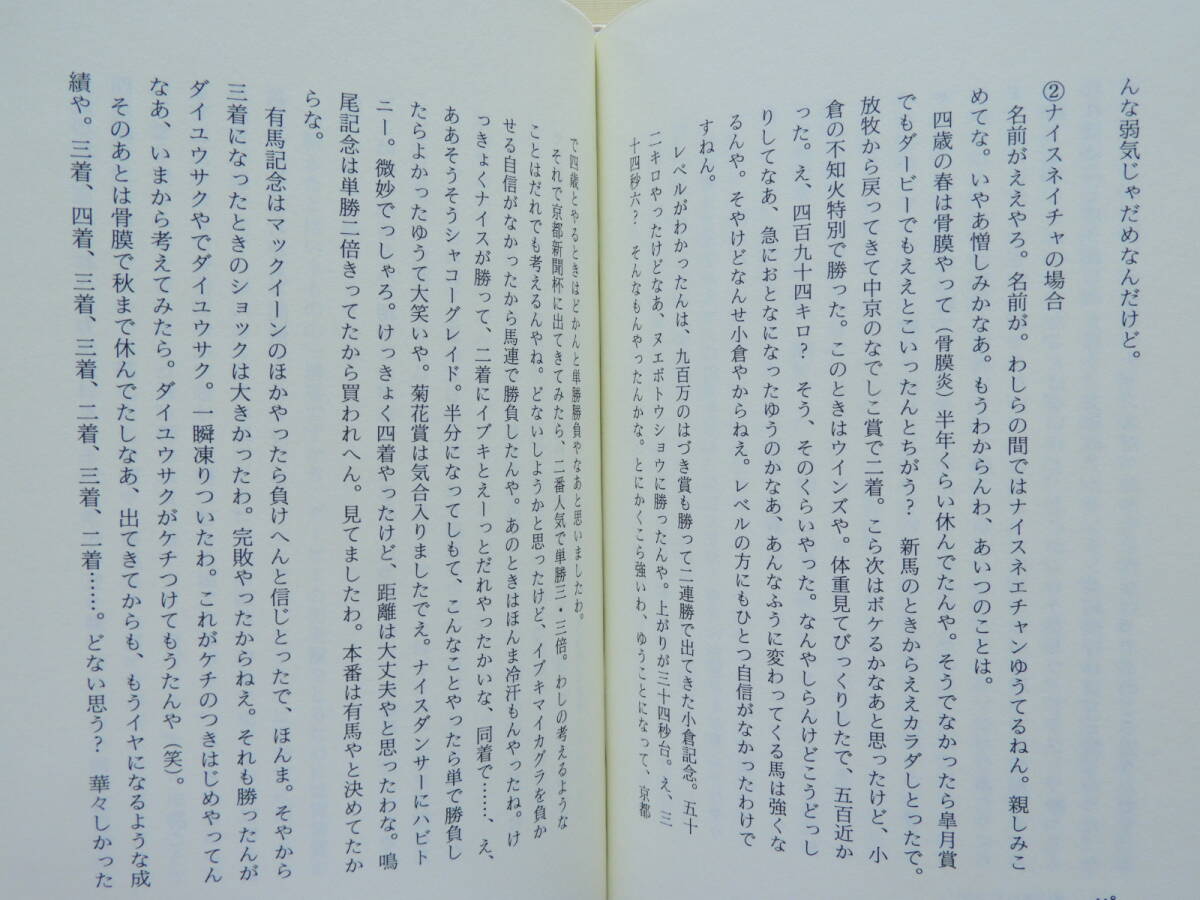 んな弱気じゃだめなんだけど。
②ナイスネイチャの場合
名前がええやろ。名前が。わしらの間ではナイスネエチャンゆうてるねん。親しみこ
めてな。いやあ憎しみかなあ。もうわからんわ、あいつのことは。
四歳の春は骨膜やって（骨膜炎）半年くらい休んでたんや。そうでなかったら皐月賞
でもダービーでもええとこいったんとちがう？　新馬のときからええカラダしとったで。
放牧から戻ってきて中京のなでしこ賞で二着。こら次はボケるかなあと思ったけど、小
倉の不知火特別で勝った。このときはウインズや。体重見てびっくりしたで、五百近か
った。え、四百九十四キロ？　そう、そのくらいやった。なんやしらんけどこうどっし
りしてなあ、急におとなになったゆうのかなあ、あんなふうに変わってくる馬は強くな
るんや。そやけどなんせ小倉やからねえ。レベルの方にもひとつ自信がなかったわけで
すねん。
レベルがわかったんは、九百万のはづき賞も勝って二連勝で出てきた小倉記念。五十
二キロやったけどなあ、ヌエボトウショウに勝ったんや。上がりが三十四秒台。え、三
十四秒六？　そんなもんやったんかな。とにかくこら強いわ、ゆうことになって、京都
で四歳とやるときはどかんと単勝勝負やなあと思いましたわ。
それで京都新聞杯に出てきてみたら、二番人気で単勝三・三倍。わしの考えるような
ことはだれでも考えるんやね。どないしようかと思ったけど、イブキマイカグラを負か
せる自信がなかったから馬連で勝負したんや。あのときはほんま冷汗もんやったね。け
っきょくナイスが勝って、二着にイブキとえーっとだれやったかいな、同着で……、え、
ああそうそうシャコーグレイド。半分になってしもて、こんなことやったら単で勝負し
たらよかったゆうて大笑いや。菊花賞は気合入りましたでえ。ナイスダンサーにハビト
ニー。微妙でっしゃろ。けっきょく四着やったけど、距離は大丈夫やと思ったわな。鳴
尾記念は単勝二倍きってたから買われへん。見てましたわ。本番は有馬やと決めてたか
らな。
有馬記念はマックイーンのほかやったら負けへんと信じとったで、ほんま。そやから
三着になったときのショックは大きかったわ。完敗やったからねえ。それも勝ったんが
ダイユウサクやでダイユウサク。一瞬凍りついたわ。これがケチのつきはじめやってん
なあ、いまから考えてみたら。ダイユウサクがケチつけてもうたんや（笑）。
そのあとは骨膜で秋まで休んでたしなあ、出てきてからも、もうイヤになるような成
績や。三着、四着、三着、三着、二着、三着、二着……。どない思う？　華々しかった